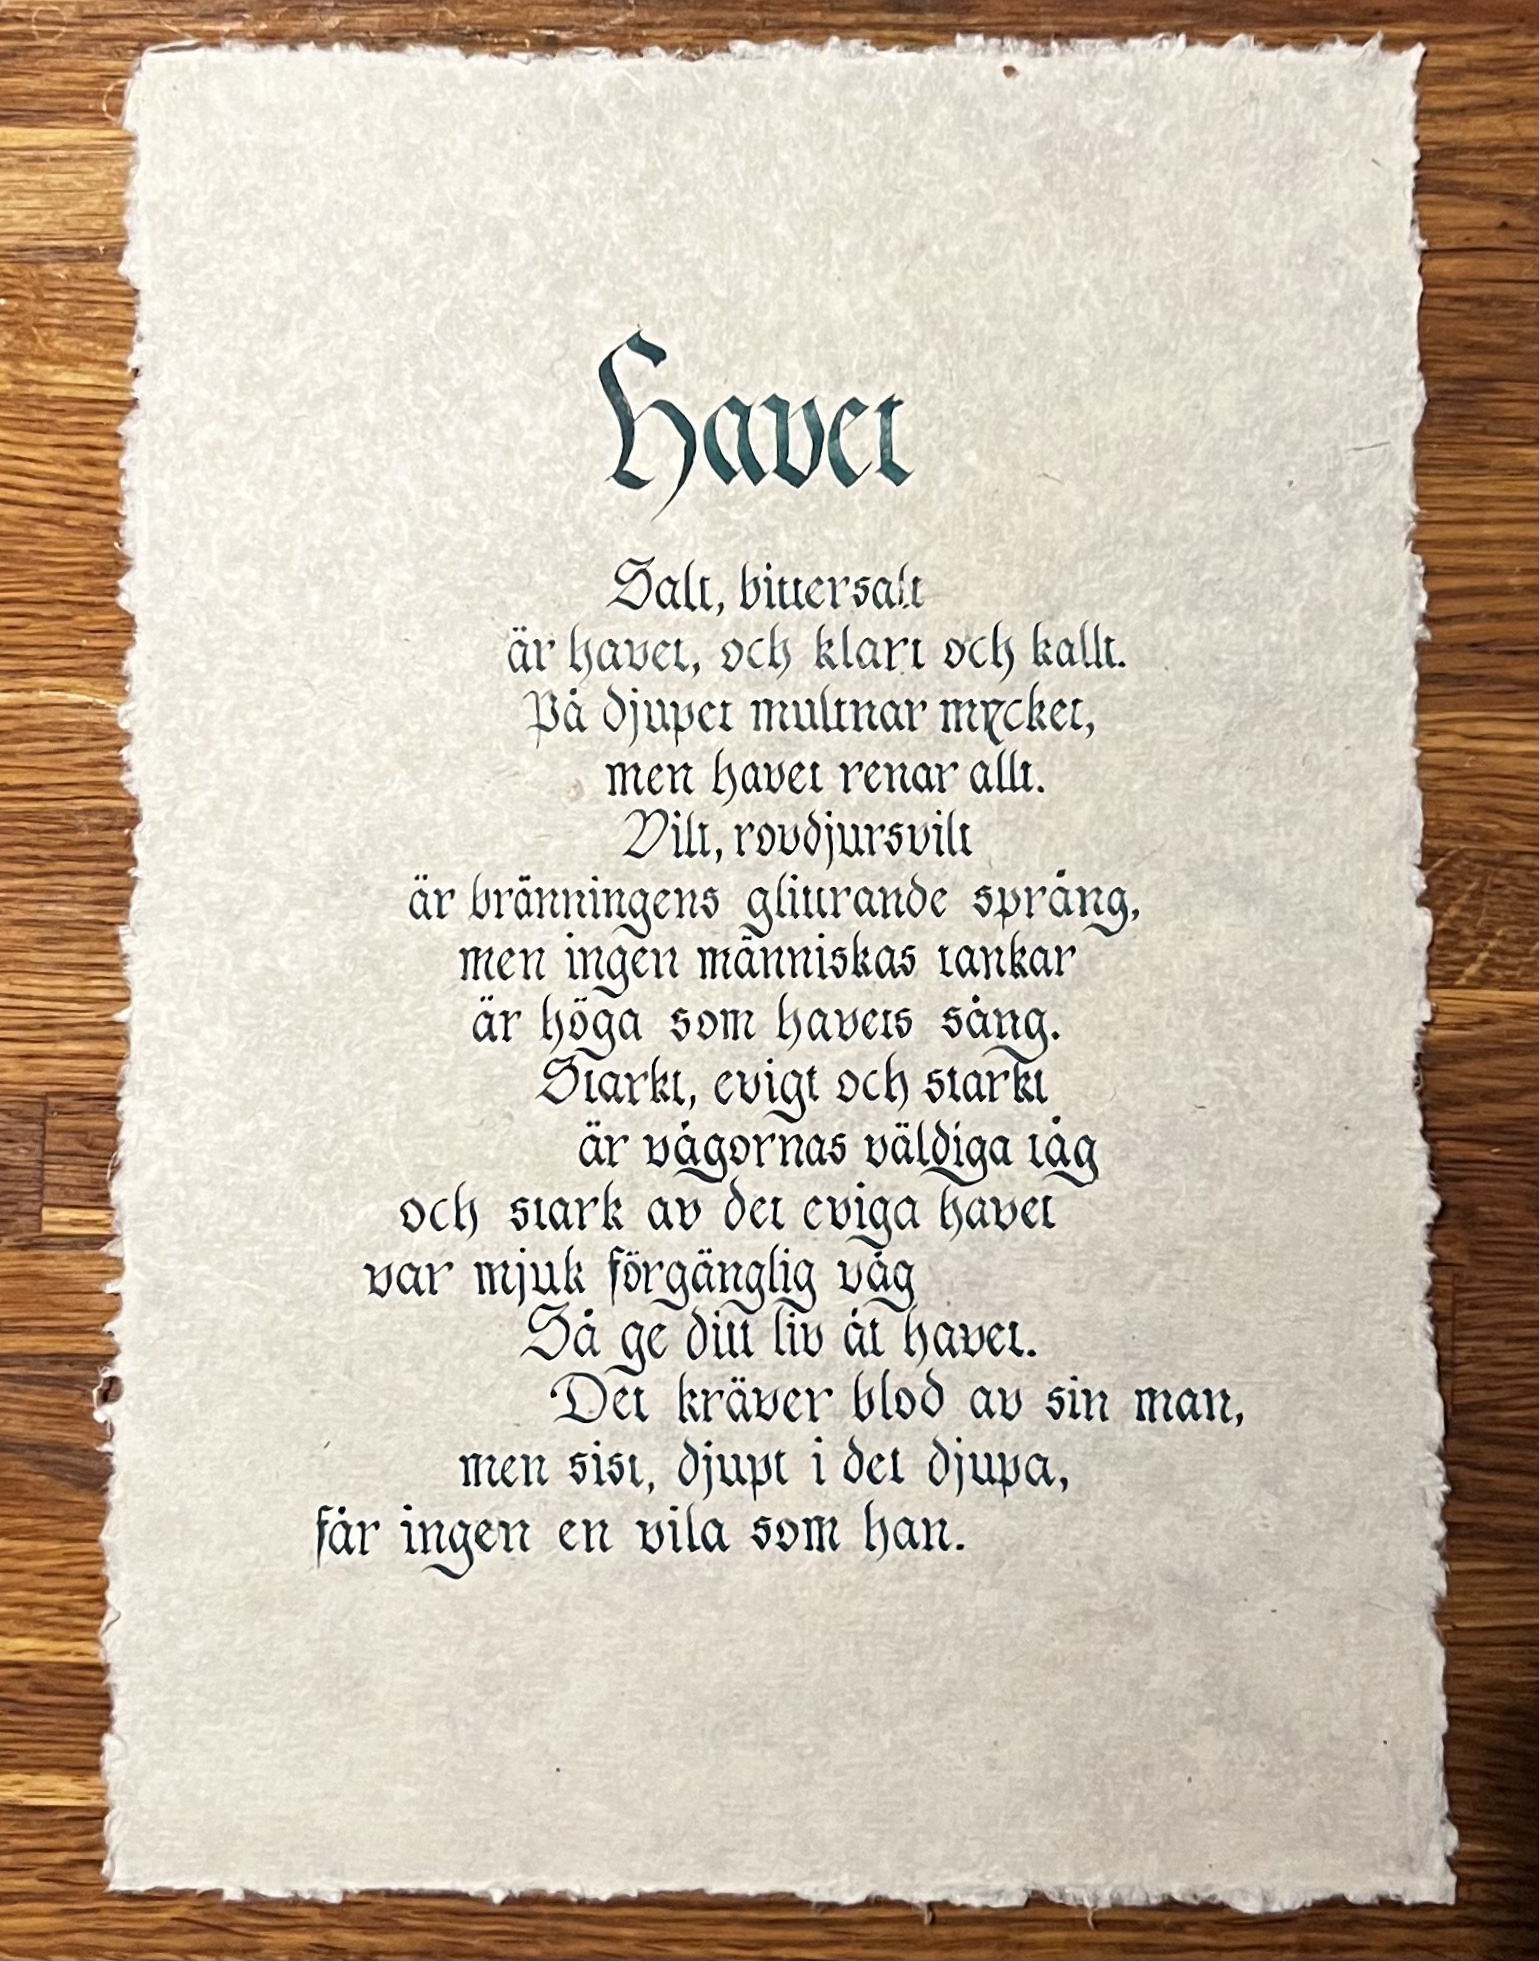 Havet
Salt, bittersalt
är havet, och klart och kallt.
På djupet multnar mycket,
men havet renar allt.
Vilt, rovdjursvilt
är bränningens glittrande språng,
men ingen människas tankar
är höga som havets sång.
Starkt, evigt och starkt
är vågornas väldiga tåg
och stark av det eviga havet
var mjuk förgänglig våg
Så ge ditt liv åt havet.
Det kräver blod av sin man,
men sist, djupt i det djupa,
får ingen en vila som han.